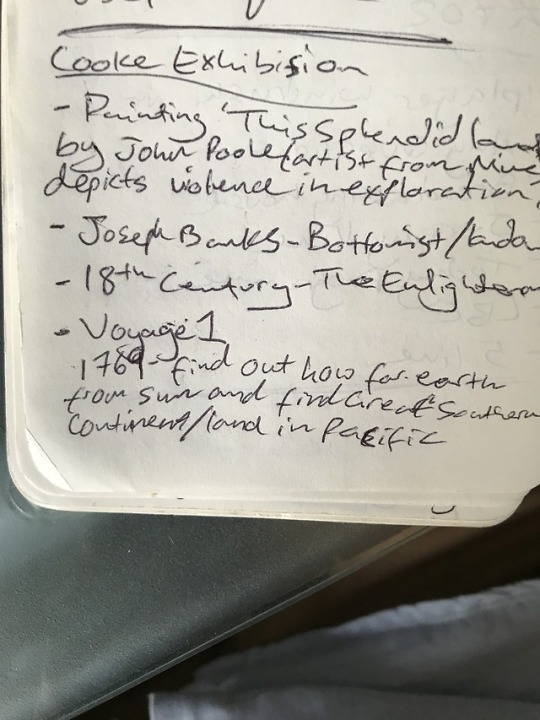 Cooke Exhibision
- Painting 'This Splendid land
by John Poole (artist from Niue
depicts violence in exploration,
- Joseph Banks - Bottomist/
- 18th Century - The Enlightenm
- Voyage 1
1769 - find out how far earth
from sun and find Great Southern
Continent/land in Pacific